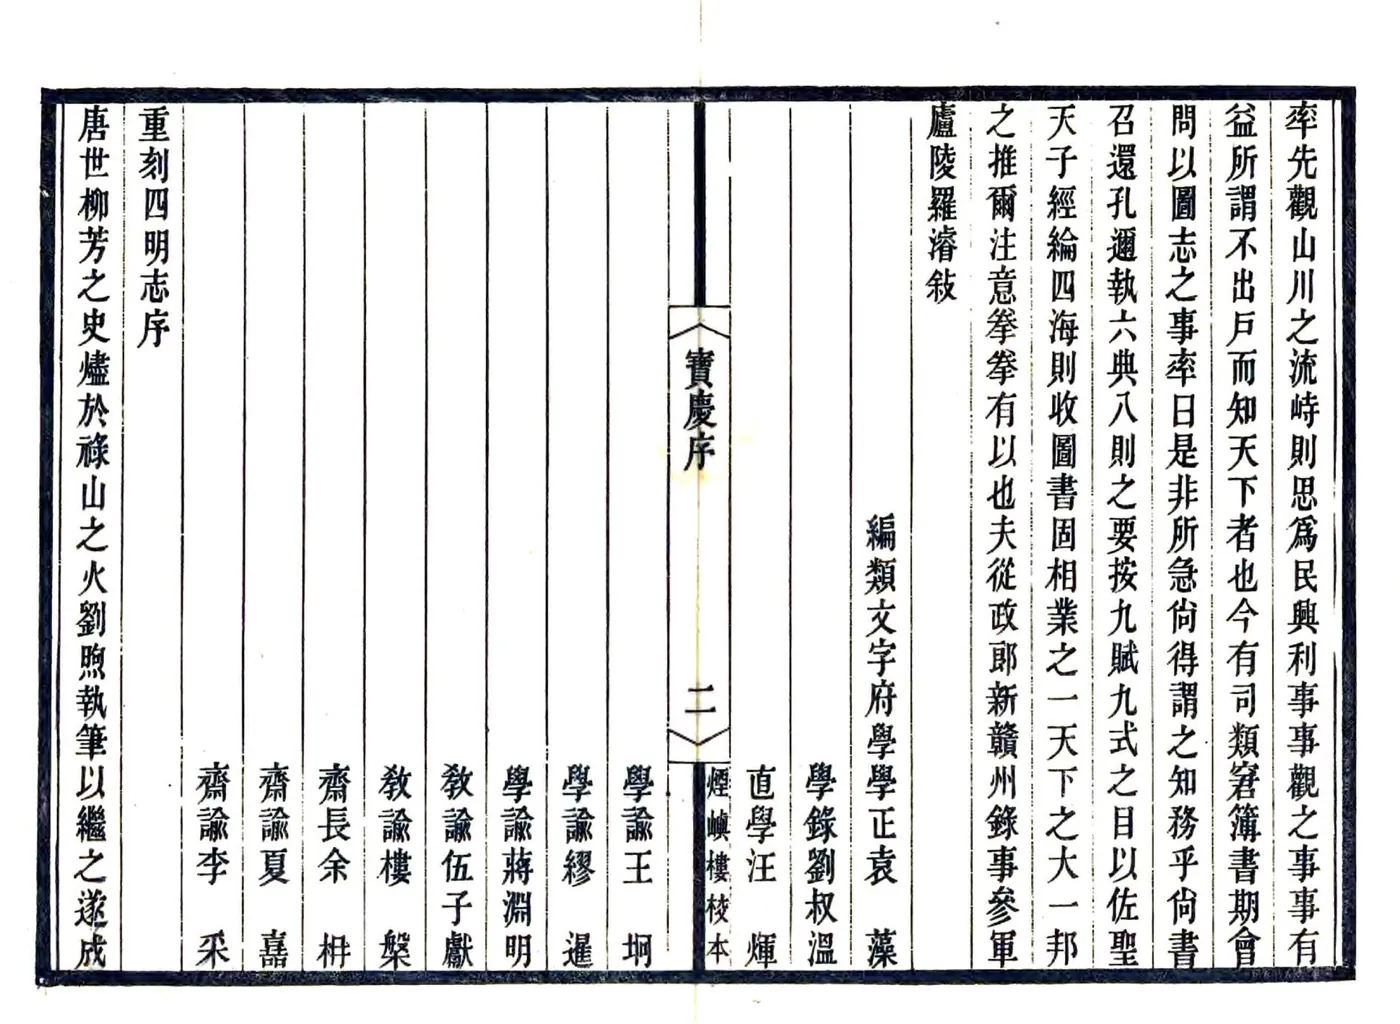 率先觀山川之流峙則思爲民興利事事觀之事事有
益所謂不出戶而知天下者也今有司類窘簿書期會
問以圖志之事率日是非所急尙得謂之知務乎尙書
召還孔邇執六典八則之要按九賦九式之目以佐聖
天子經綸四海則收圖書固相業之一天下之大一邦
之推爾注意拳拳有以也夫從政郎新贛州錄事參軍
廬陵羅濬敍
編類文字府學學正袁　藻
學錄劉叔溫
直學汪　煇
寶慶序
二
煙嶼樓校本
學諭王　坰
學諭繆　暹
學諭蔣淵明
敎諭伍子獻
敎諭樓　槃
齋長余　枏
齋諭夏　嘉
齋諭李　采
重刻四明志序
唐世柳芳之史燼於祿山之火劉煦執筆以繼之遂成